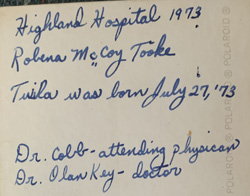 Highland Hospital 1973
Robena McCoy Tooke
Twila was born July 27, '73
Dr. Cobb - attending physican
Dr. Olan Key - doctor
POLAROID® POLAROID®